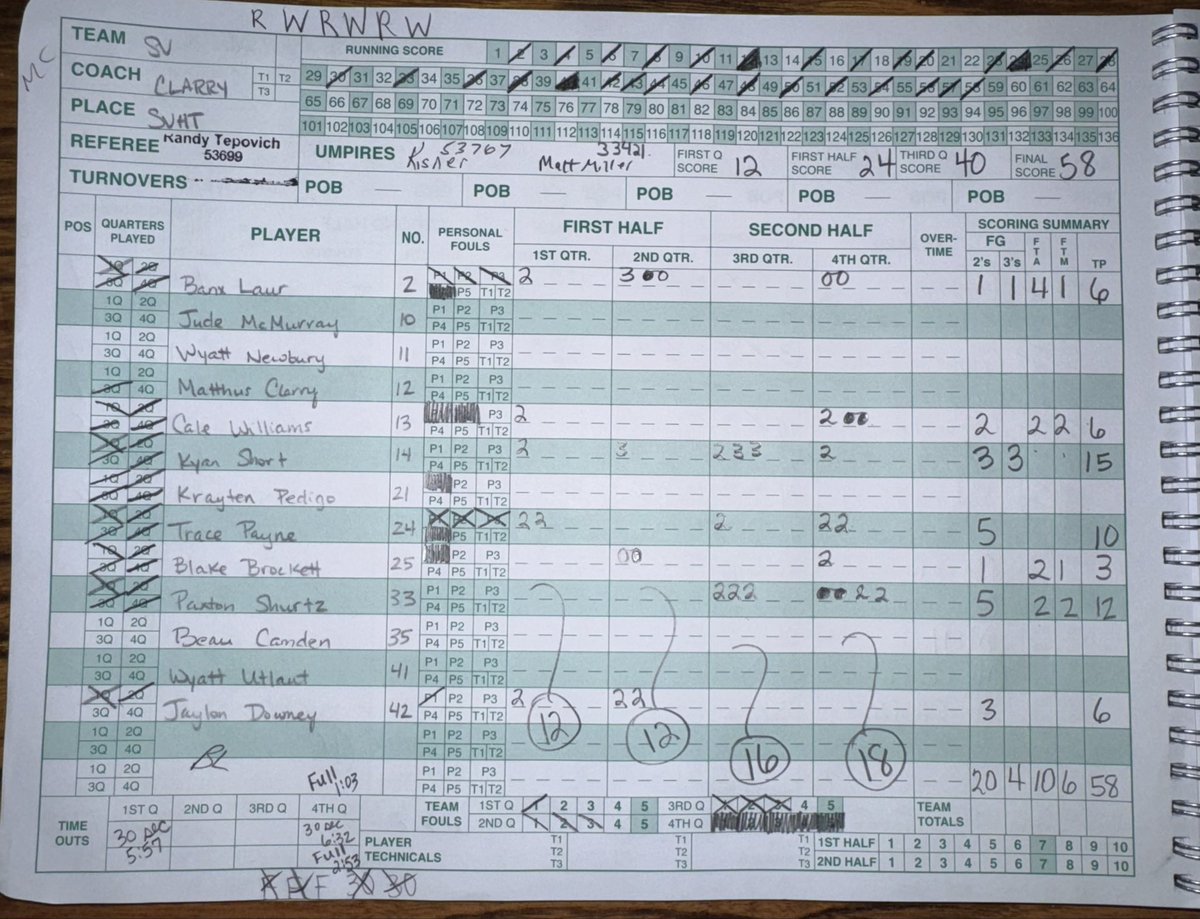 R W R W R W
MC
TEAM SV RUNNING SCORE 1 2 3 4 5 6 7 8 9 10 11 12 13 14 15 16 17 18 19 20 21 22 23 24 25 26 27 28
COACH CLARRY T1 T2 T3 29 30 31 32 33 34 35 36 37 38 39 40 41 42 43 44 45 46 47 48 49 50 51 52 53 54 55 56 57 58 59 60 61 62 63 64
PLACE SVHT 65 66 67 68 69 70 71 72 73 74 75 76 77 78 79 80 81 82 83 84 85 86 87 88 89 90 91 92 93 94 95 96 97 98 99 100
101 102 103 104 105 106 107 108 109 110 111 112 113 114 115 116 117 118 119 120 121 122 123 124 125 126 127 128 129 130 131 132 133 134 135 136
REFEREE Kandy Tepovich 53699 UMPIRES Kisner 53767 Matt Miller 33421 FIRST Q SCORE 12 FIRST HALF SCORE 24 THIRD Q SCORE 40 FINAL SCORE 58
TURNOVERS POB — POB — POB — POB — POB —
POS QUARTERS PLAYED PLAYER NO. PERSONAL FOULS FIRST HALF SECOND HALF OVER-TIME SCORING SUMMARY
1ST QTR. 2ND QTR. 3RD QTR. 4TH QTR. FG 2's 3's FTA FTM TP
1Q 2Q 3Q 4Q Banx Laur 2 P1 P2 P3 P5 T1 T2 2 3 0 0 0 0 1 1 4 1 6
1Q 2Q 3Q 4Q Jude McMurray 10 P1 P2 P3 P4 P5 T1 T2
1Q 2Q 3Q 4Q Wyatt Newbury 11 P1 P2 P3 P4 P5 T1 T2
1Q 2Q 3Q 4Q Matthus Clarry 12 P1 P2 P3 P4 P5 T1 T2
1Q 2Q 3Q 4Q Cale Williams 13 P3 P4 P5 T1 T2 2 2 0 0 2 2 2 6
1Q 2Q 3Q 4Q Kyan Short 14 P1 P2 P3 P4 P5 T1 T2 2 3 2 3 3 2 3 3 15
1Q 2Q 3Q 4Q Krayten Pedigo 21 P2 P3 P4 P5 T1 T2
1Q 2Q 3Q 4Q Trace Payne 24 P1 P2 P3 P5 T1 T2 2 2 2 2 2 5 10
1Q 2Q 3Q 4Q Blake Brockett 25 P2 P3 P4 P5 T1 T2 0 0 2 1 2 1 3
1Q 2Q 3Q 4Q Paxton Shurtz 33 P1 P2 P3 P4 P5 T1 T2 2 2 2 0 0 2 2 5 2 2 12
1Q 2Q 3Q 4Q Beau Camden 35 P1 P2 P3 P4 P5 T1 T2
1Q 2Q 3Q 4Q Wyatt Utlaut 41 P1 P2 P3 P4 P5 T1 T2
1Q 2Q 3Q 4Q Jaylon Downey 42 P1 P2 P3 P4 P5 T1 T2 2 2 2 3 6
1Q 2Q 3Q 4Q P1 P2 P3 P4 P5 T1 T2 12 12 16 18
1Q 2Q 3Q 4Q P1 P2 P3 P4 P5 T1 T2 20 4 10 6 58
Full 1:03
TIME OUTS 1ST Q 2ND Q 3RD Q 4TH Q TEAM FOULS 1ST Q 1 2 3 4 5 3RD Q 1 2 3 4 5 TEAM TOTALS
2ND Q 1 2 3 4 5 4TH Q
30 sec 5:57 30 sec 6:32 Full 2:53
PLAYER TECHNICALS T1 T2 T3 T1 T2 T3 T1 T2 T3 1ST HALF 1 2 3 4 5 6 7 8 9 10
2ND HALF 1 2 3 4 5 6 7 8 9 10
F F F 30 30